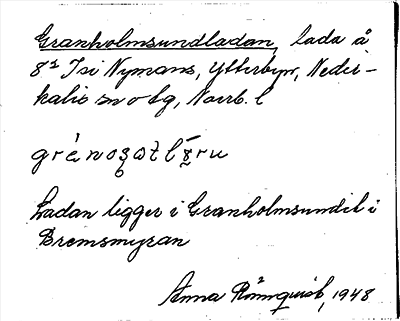 Granholmsundladan, lada å
Isi Nymans, Ytterbyn, Neder-
kalix sn o tg, Norrb. l
Ladan ligger i Granholmsundet i
Bremsmyran
Anna Rönnquist, 1948